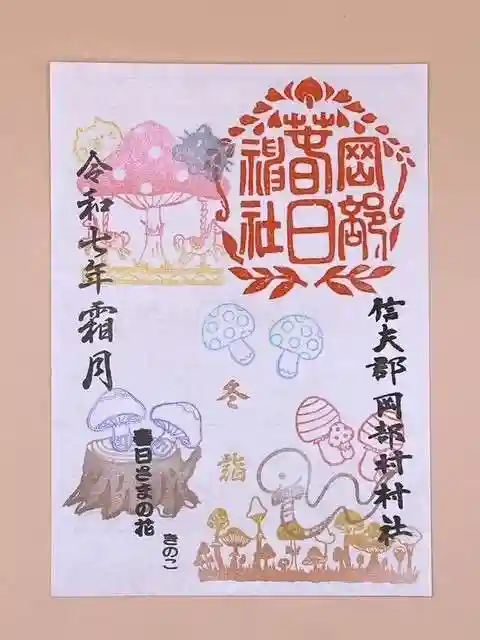 岡部
春日
神社
信夫郡岡部村村社
冬詣
令和七年霜月
春日さまの花
きのこ